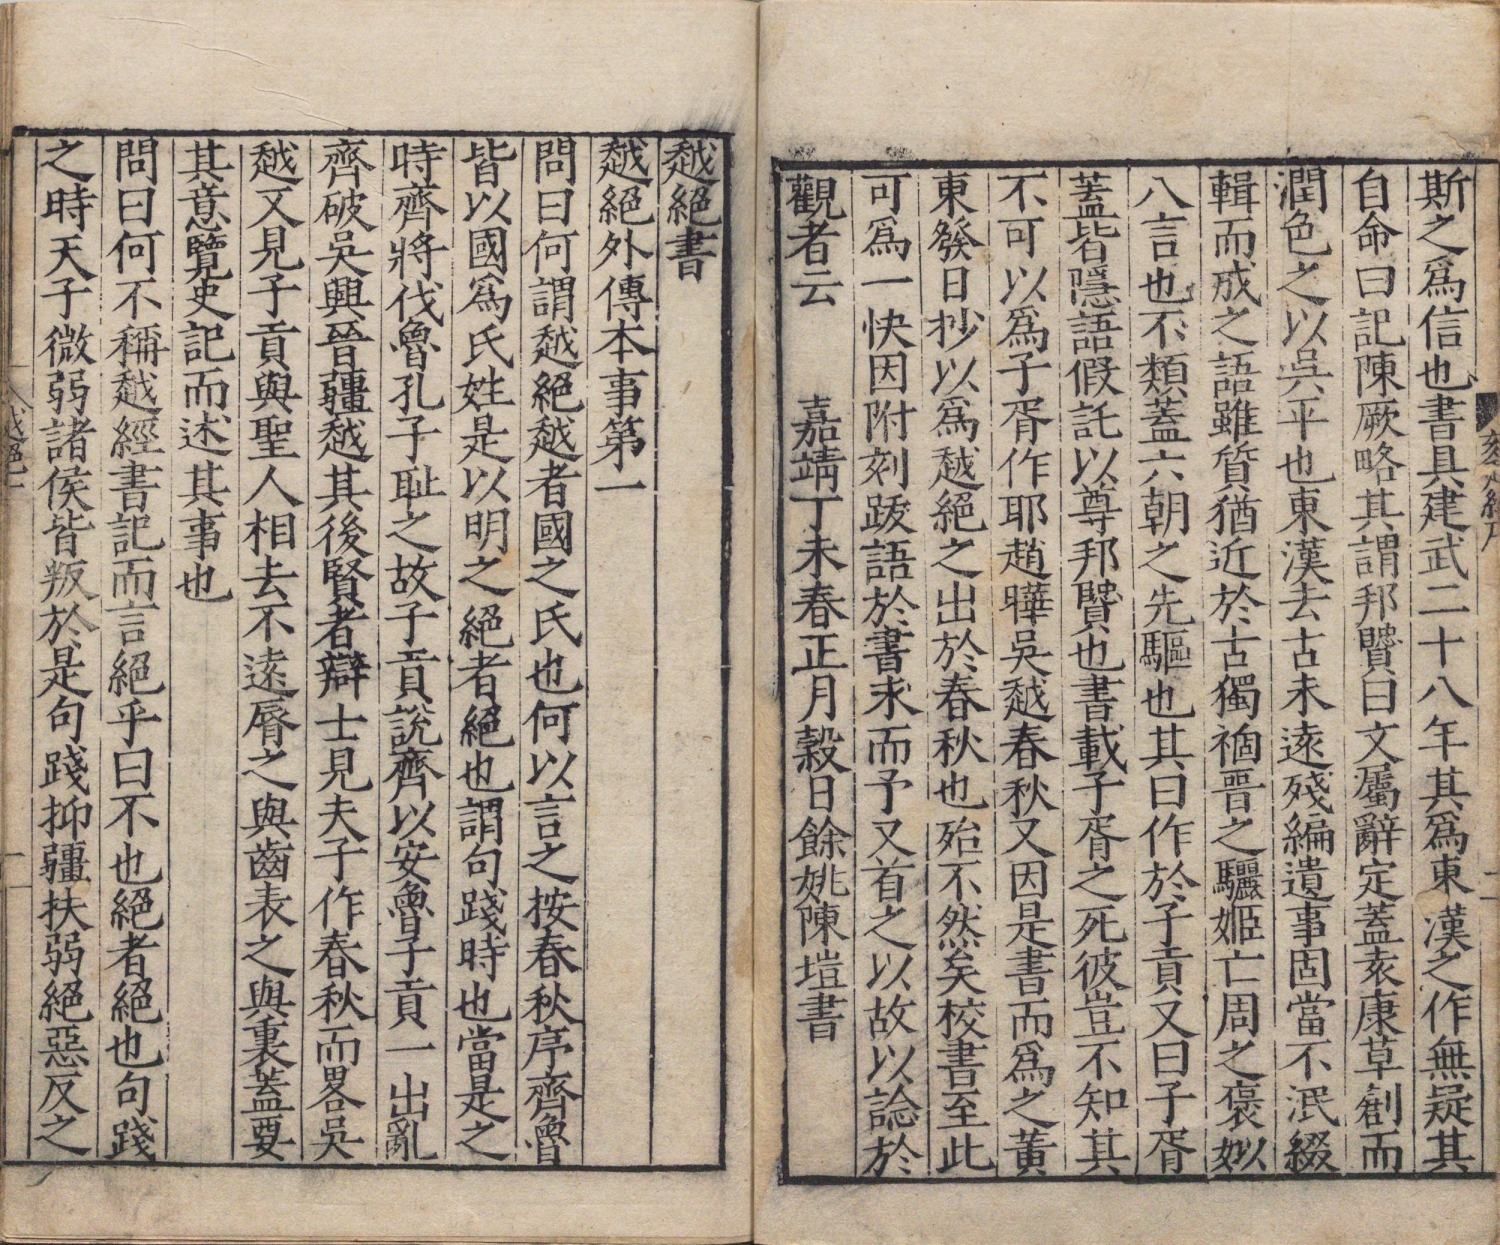 斯之爲信也書具建武二十八年其爲東漢之作無疑其
自命曰記陳厥略其謂邦賢曰文屬辭定蓋袁康草創而
潤色之以吳平也東漢去古未遠殘編遺事固當不泯綴
輯而成之語雖質猶近於古獨祻晋之驪姬亡周之褒姒
八言也不類蓋六朝之先驅也其曰作於子貢又曰子胥
蓋皆隱語假託以尊邦賢也書載子胥之死彼豈不知其
不可以爲子胥作耶趙曄吳越春秋又因是書而爲之黄
東發日抄以爲越絕之出於春秋也殆不然矣校書至此
可爲一快因附刻跋語於書末而予又首之以故以諗於
觀者云 嘉靖丁未春正月穀日餘姚陳塏書
越絕書
越絕外傳本事第一
問曰何謂越絕越者國之氏也何以言之按春秋序齊魯
皆以國爲氏姓是以明之絕者絕也謂句踐時也當是之
時齊將伐魯孔子恥之故子貢說齊以安魯子貢一出亂
齊破吳興晉疆越其後賢者辯士見夫子作春秋而畧吳
越又見子貢與聖人相去不遠脣之與齒表之與裏蓋要
其意覽史記而述其事也
問曰何不稱越經書記而言絕乎曰不也絕者絕也句踐
之時天子微弱諸侯皆叛於是句踐抑疆扶弱絕惡反之
越絕一